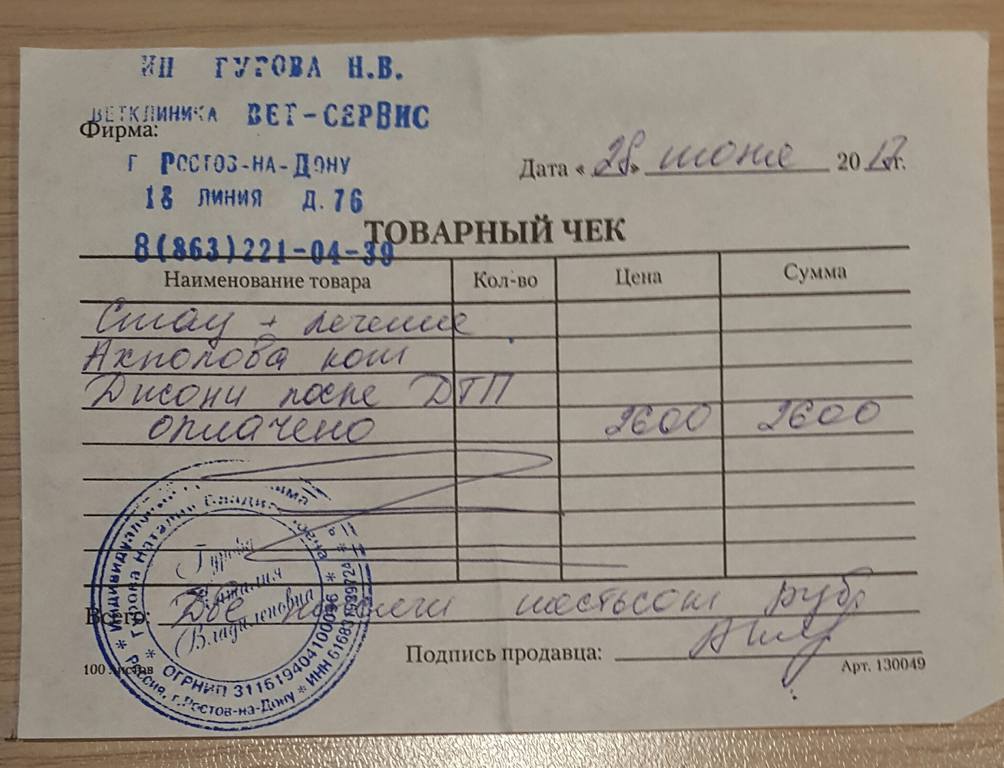 ИП ГУРОВА Н.В.
ВЕТКЛИНИКА ВЕТ-СЕРВИС
Фирма:
Г РОСТОВ-НА-ДОНУ
18 ЛИНИЯ Д. 76
8(863)221-04-39
Дата « 28 » июня 20 17 г.
ТОВАРНЫЙ ЧЕК
Наименование товара Кол-во Цена Сумма
Стац + лечение
кош
после ДТП
оплачено 2600 2600
Всего: Две тысячи шестьсот руб
Подпись продавца:
100 листов
Арт. 130049
* Индивидуальный
Гурова Наталия Владиленовна
Гурова
Наталия
Владиленовна
* ОГРНИП 311619404100096 *
Россия, г.Ростов-на-Дону * ИНН